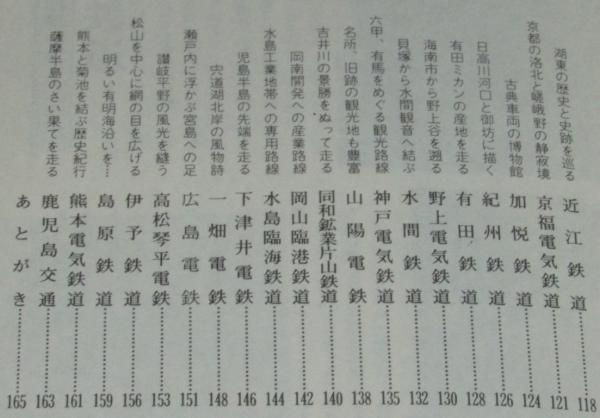 湖東の歴史と史跡を巡る 近江鉄道 118
京都の洛北と嵯峨野の静寂境 京福電気鉄道 121
古典車両の博物館 加悦鉄道 124
日高川河口と御坊に描く 紀州鉄道 126
有田ミカンの産地を走る 有田鉄道 128
海南市から野上谷を遡る 野上電気鉄道 130
貝塚から水間観音へ結ぶ 水間鉄道 132
六甲、有馬をめぐる観光路線 神戸電気鉄道 135
名所、旧跡の観光地も豊富 山陽電鉄 138
吉井川の景勝をぬって走る 同和鉱業片山鉄道 140
岡南開発への産業路線 岡山臨港鉄道 142
水島工業地帯への専用路線 水島臨海鉄道 144
児島半島の先端を走る 下津井電鉄 146
宍道湖北岸の風物詩 一畑電鉄 148
瀬戸内に浮かぶ宮島への足 広島電鉄 151
讃岐平野の風光を縫う 高松琴平電鉄 153
松山を中心に網の目を広げる 伊予鉄道 156
明るい有明海沿いを… 島原鉄道 159
熊本と菊池を結ぶ歴史紀行 熊本電気鉄道 161
薩摩半島のさい果てを走る 鹿児島交通 163
あとがき 165